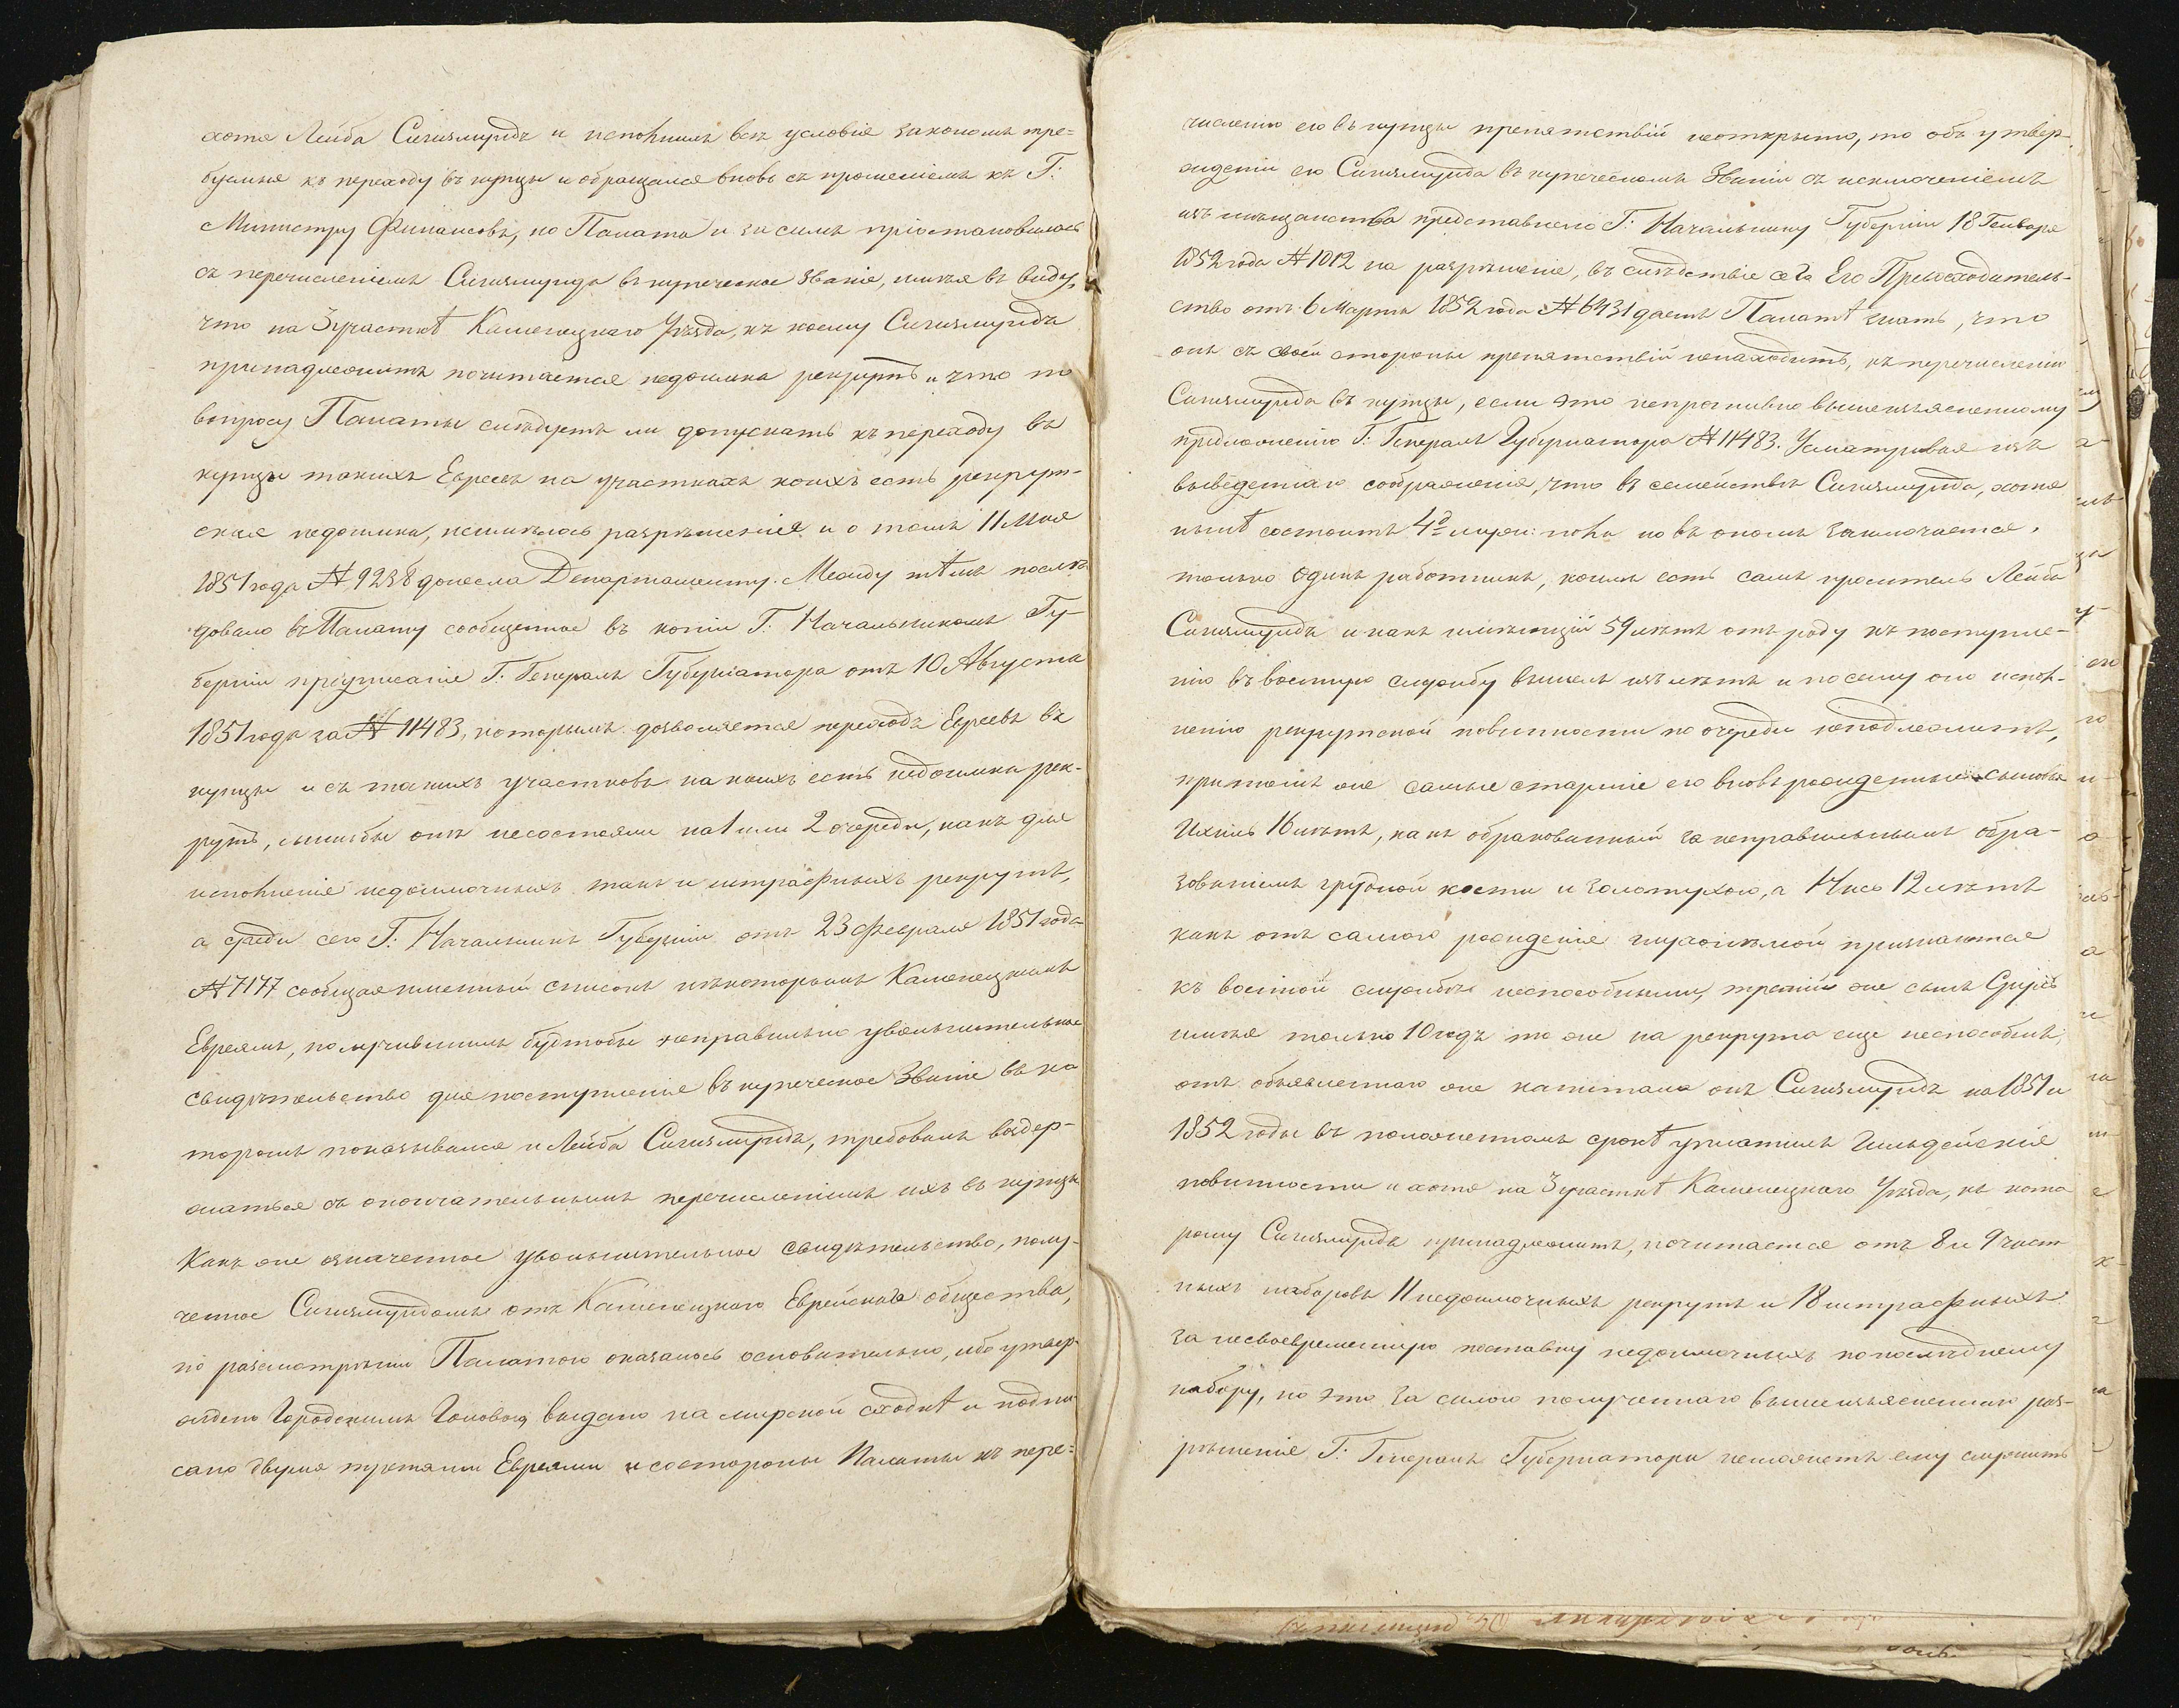 хотя Лейба Сигизмундъ и исполнилъ всѣ условія закономъ тре=
буемыя къ переходу въ купцы и обращался вновь съ прошеніемъ къ Г:
Министру Финансовъ, но Палата и за симъ пріостановилась
съ перечисленіемъ Сигизмунда въ купеческое званіе, имѣя въ виду,
что на 3 участкѣ Каменецкаго Уѣзда, къ коему Сигизмундъ
принадлежитъ почитается недоимка рекрутъ и что по
вопросу Палаты слѣдуетъ ли допускать къ переходу въ
купцы такихъ Евреевъ на участкахъ коихъ есть рекрут-
ская недоимка, неимѣлось разрѣшенія и о томъ 11 Мая
1851 года № 9238 донесла Департаменту. Между тѣмъ послѣ
довало въ Палату сообщенное въ копіи Г: Начальникомъ Гу-
берніи предписаніе Г: Генералъ Губернатора отъ 10 Августа
1851 года за № 11483, которымъ дозволяется переходъ Евреевъ въ
купцы и съ такихъ участковъ на коихъ есть недоимка рек-
рутъ, еслибы онѣ несостояли на 1 или 2 очереди, какъ для
исполненія недоимочныхъ такъ и штрафныхъ рекрутъ,
а среди сего Г: Начальникъ Губерніи отъ 23 Февраля 1851 года
№ 7177 сообщая именный списокъ нѣкоторымъ Каменецкимъ
Евреямъ, получившимъ будтобы неправильно увольнительное
свидѣтельство для поступленія въ купеческое званіе въ ко
торомъ показывался и Лейба Сигизмундъ, требовалъ воздер-
жаться съ окончательнымъ перечисленіемъ ихъ въ купцы.
Какъ же означенное увольнительное свидѣтельство, полу-
ченное Сигизмундомъ отъ Каменецкаго Еврейскаго общества,
по разсмотрѣніи Палатою оказалось основательно, ибо утвер-
ждено Городскимъ Головою, выдано на мирской сходкѣ и подпи
сано двумя третями Евреями и состороны Палаты къ пере=
численію его въ купцы препятствій неоткрыто, то объ утвер-
жденіи его Сигизмунда въ купеческомъ званіи съ исключеніемъ
изъ мѣщанства представлено Г: Начальнику Губерніи 18 Генваря
1852 года № 1012 на разрѣшеніе, въ слѣдствіе сего Его Превосходитель-
ство отъ 6 Марта 1852 года № 6431 даетъ Палатѣ знать, что
онъ съ своей стороны препятствій ненаходитъ, къ перечисленію
Сигизмунда въ купцы, если это непротивно вышеизъясненному
предложенію Г: Генералъ Губернатора № 11483. Усматривая изъ
выведеннаго соображенія, что въ семействѣ Сигизмунда, хотя
нынѣ состоитъ 4 муж: пола но въ ономъ заключается
только одинъ работникъ, коимъ есть самъ проситель Лейба
Сигизмундъ и какъ имѣющій 59 лѣтъ отъ роду къ поступле-
нію въ военную службу вышелъ изъ лѣтъ и по сему ко испол-
ненію рекрутской повинности по очереди неподлежитъ,
притомъ же самые старшіе его вновь рожденные сыновья
Ихиль 16 лѣтъ, какъ обракованный за неправильнымъ обра-
зованіемъ грудной кости и золотухою, а 12 лѣтъ
какъ отъ самого рожденія признаются
къ военной службѣ неспособными, третій же сынъ
имѣя только 10 годъ то же на рекрута еще неспособенъ,
отъ объявленнаго же капитала онъ Сигизмундъ на 1851 и
1852 годы въ положенномъ срокѣ уплатилъ Гильдейскія
повинности и хотя на 3 участкѣ Каменецкаго Уѣзда, къ кото
рому Сигизмундъ принадлежитъ, почитается отъ 8 и 9 част
ныхъ наборовъ 11 недоимочныхъ рекрутъ и 18 штрафныхъ
за несвоевременную поставку недоимочныхъ по послѣднему
набору, но это за силою полученнаго вышеизъясненнаго раз-
рѣшенія Г: Генералъ Губернатора неможетъ ему служить